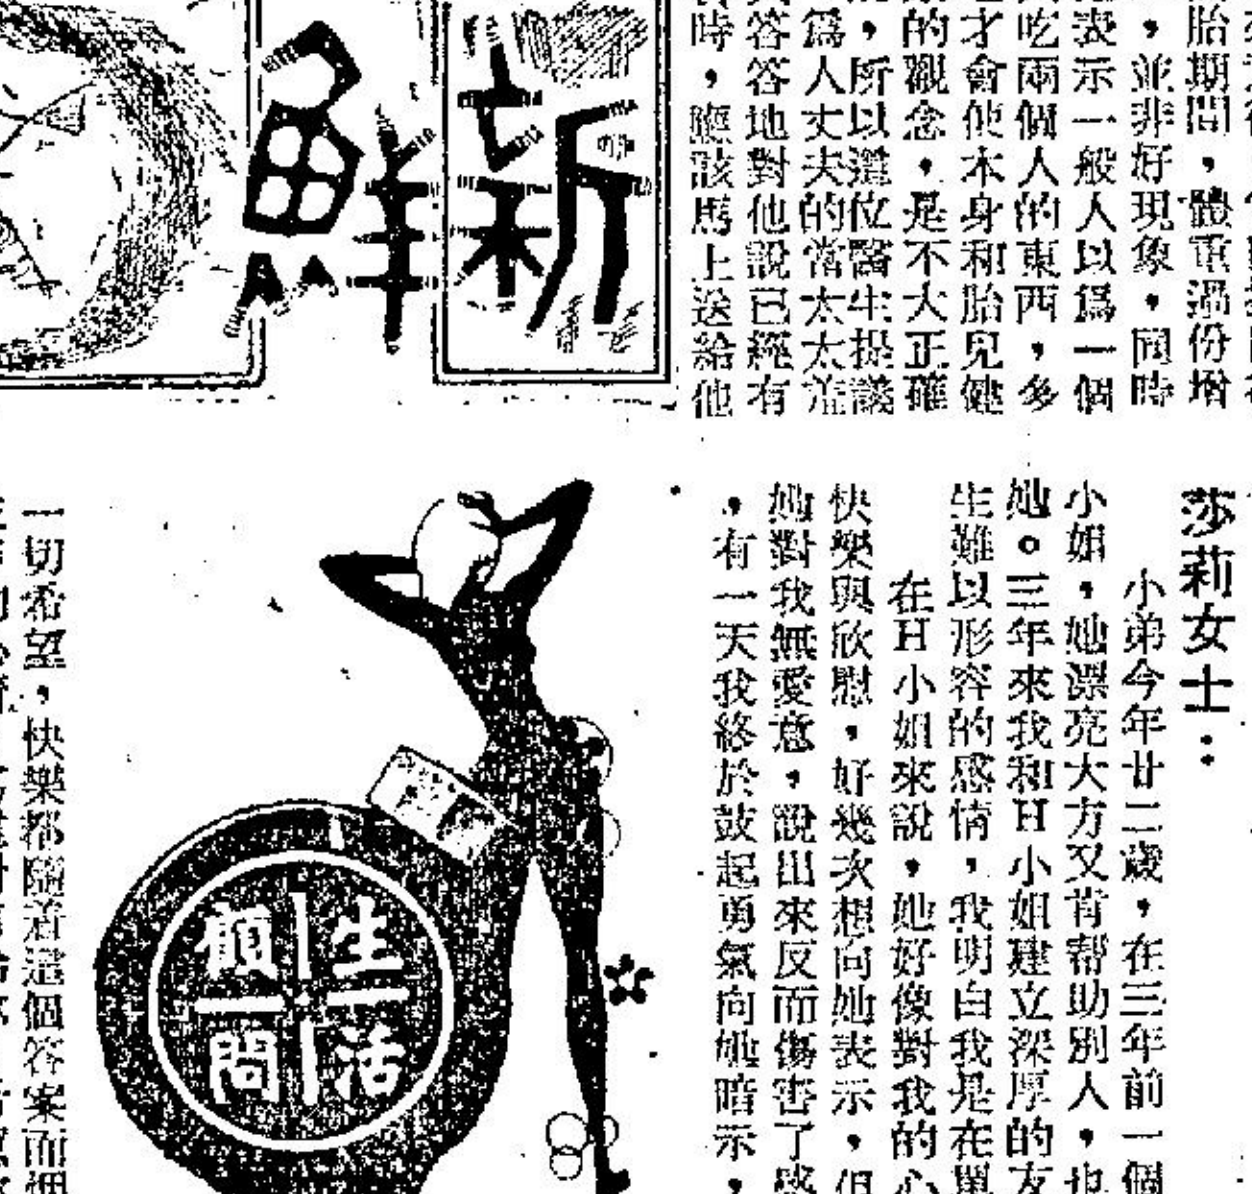 胎期間，體重過份增
，並非好現象，同時
表示一般人以爲一個
吃兩個人的東西，多
才會使本身和胎兒健
的觀念，是不大正確
，所以這位醫生提議
爲人丈夫的當太太羞
答答地對他說已經有
時，應該馬上送給他
新鮮
莎莉女士：
小弟今年廿二歲，在三年前一個
小姐，她漂亮大方又肯帮助別人，也
她。三年來我和H小姐建立深厚的友
生難以形容的感情，我明白我是在單
在H小姐來說，她好像對我的心
快樂與欣慰，好幾次想向她表示，但
她對我無愛意，說出來反而傷害了感
，有一天我終於鼓起勇氣向她暗示，
生活
顧問
一切希望，快樂都隨着這個答案而